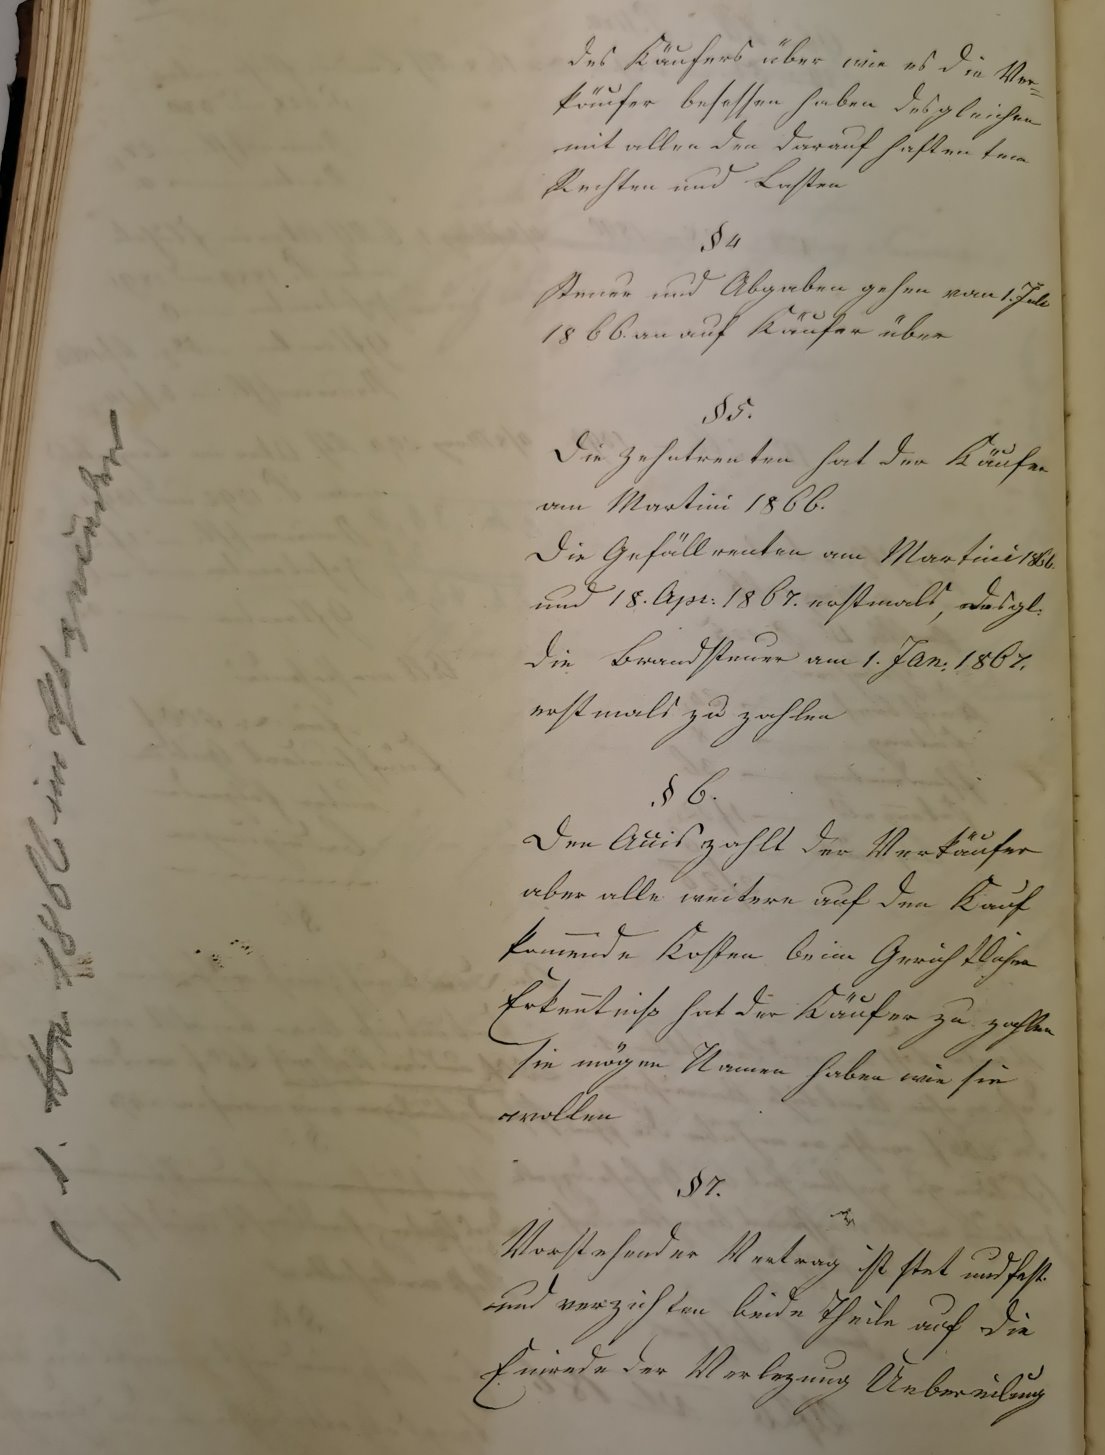 des Käufers über wie es die Ver=
käufer besessen haben desgleichen
mit allen den darauf haftenten
Rechten und Lasten
§ 4
Steuer und Abgaben gehen vom 1. Juli
1866. an auf Käufer über
§ 5.
Die Zehntrenten hat der Käufer
am Martini 1866.
Die Gefällrenten am Martini 1866.
und 18. Apr: 1867. erstmals, desgl.
die Brandsteuer am 1. Jan: 1867.
erstmals zu zahlen
§ 6.
Den Accis zahlt der Verkäufer
aber alle weitere auf den Kauf
kom̅ende Kosten beim Gericht
Erken̅tniß hat der Käufer zu zahlen
sie mögen Namen haben wie sie
wollen
§ 7.
Vorstehender Vertrag ist stet und fest
und verzichten beide Theile auf die
Einrede der Verlezung Uebereilung
1866 im